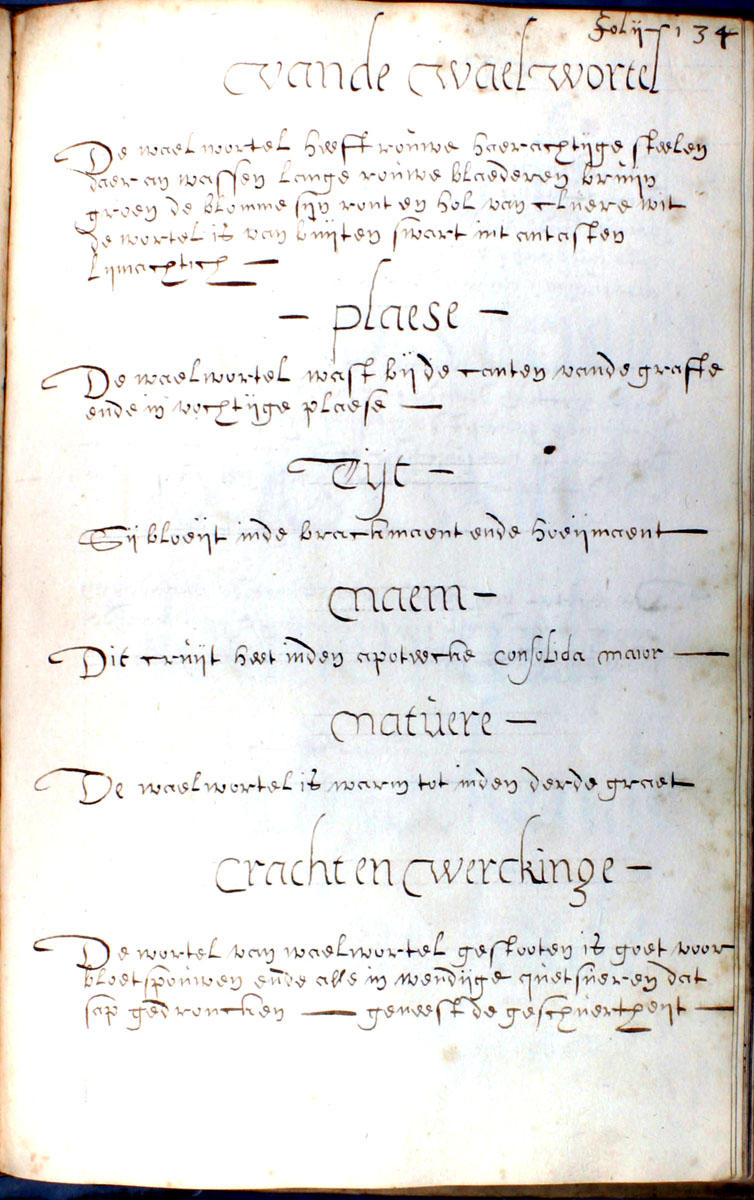 folij 134
vande waelwortel
De waelwortel heeft rouwe haerachtijge steelen
daer an wassen lange rouwe blaederen bruijn
groen de blomme sijn ront en hol van cluere wit
de wortel is van buijten swart int antasten
lijmachtich —
— plaese —
De waelwortel wast bij de canten vande grafte
ende in vochtijge plaese —
Tijt —
Sij bloeijt inde brackmaent ende hoeijmaent —
Naem —
Dit cruijt heet inden apoteecke consolida maior —
Natuere —
De waelwortel is warm tot inden derde graet
Cracht en werckinge —
De wortel van waelwortel gestooten is goet voor
bloetspouwen ende alle in wendijge quetsueren dat
sap gedroncken — geneest de geschuertheijt —